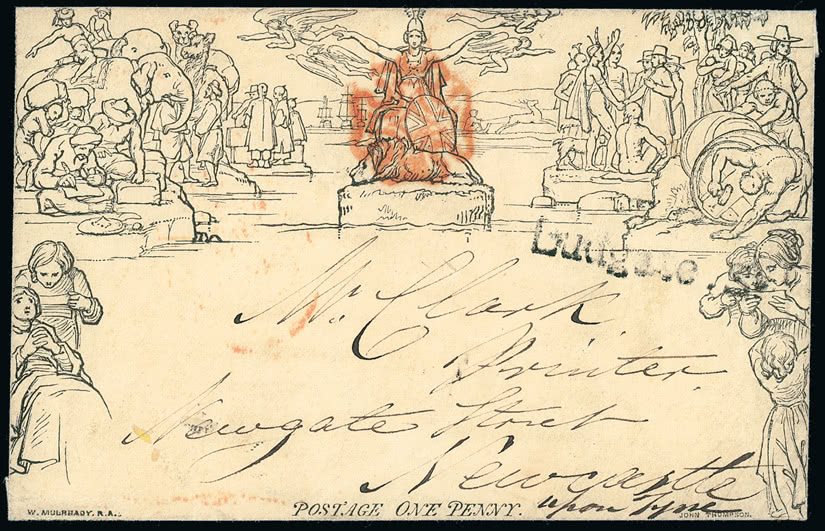 Ludgate
Mr. Clark
Printer
Newgate Street
Newcastle
upon Tyne
W. MULREADY. R.A.
POSTAGE ONE PENNY.
JOHN THOMPSON.